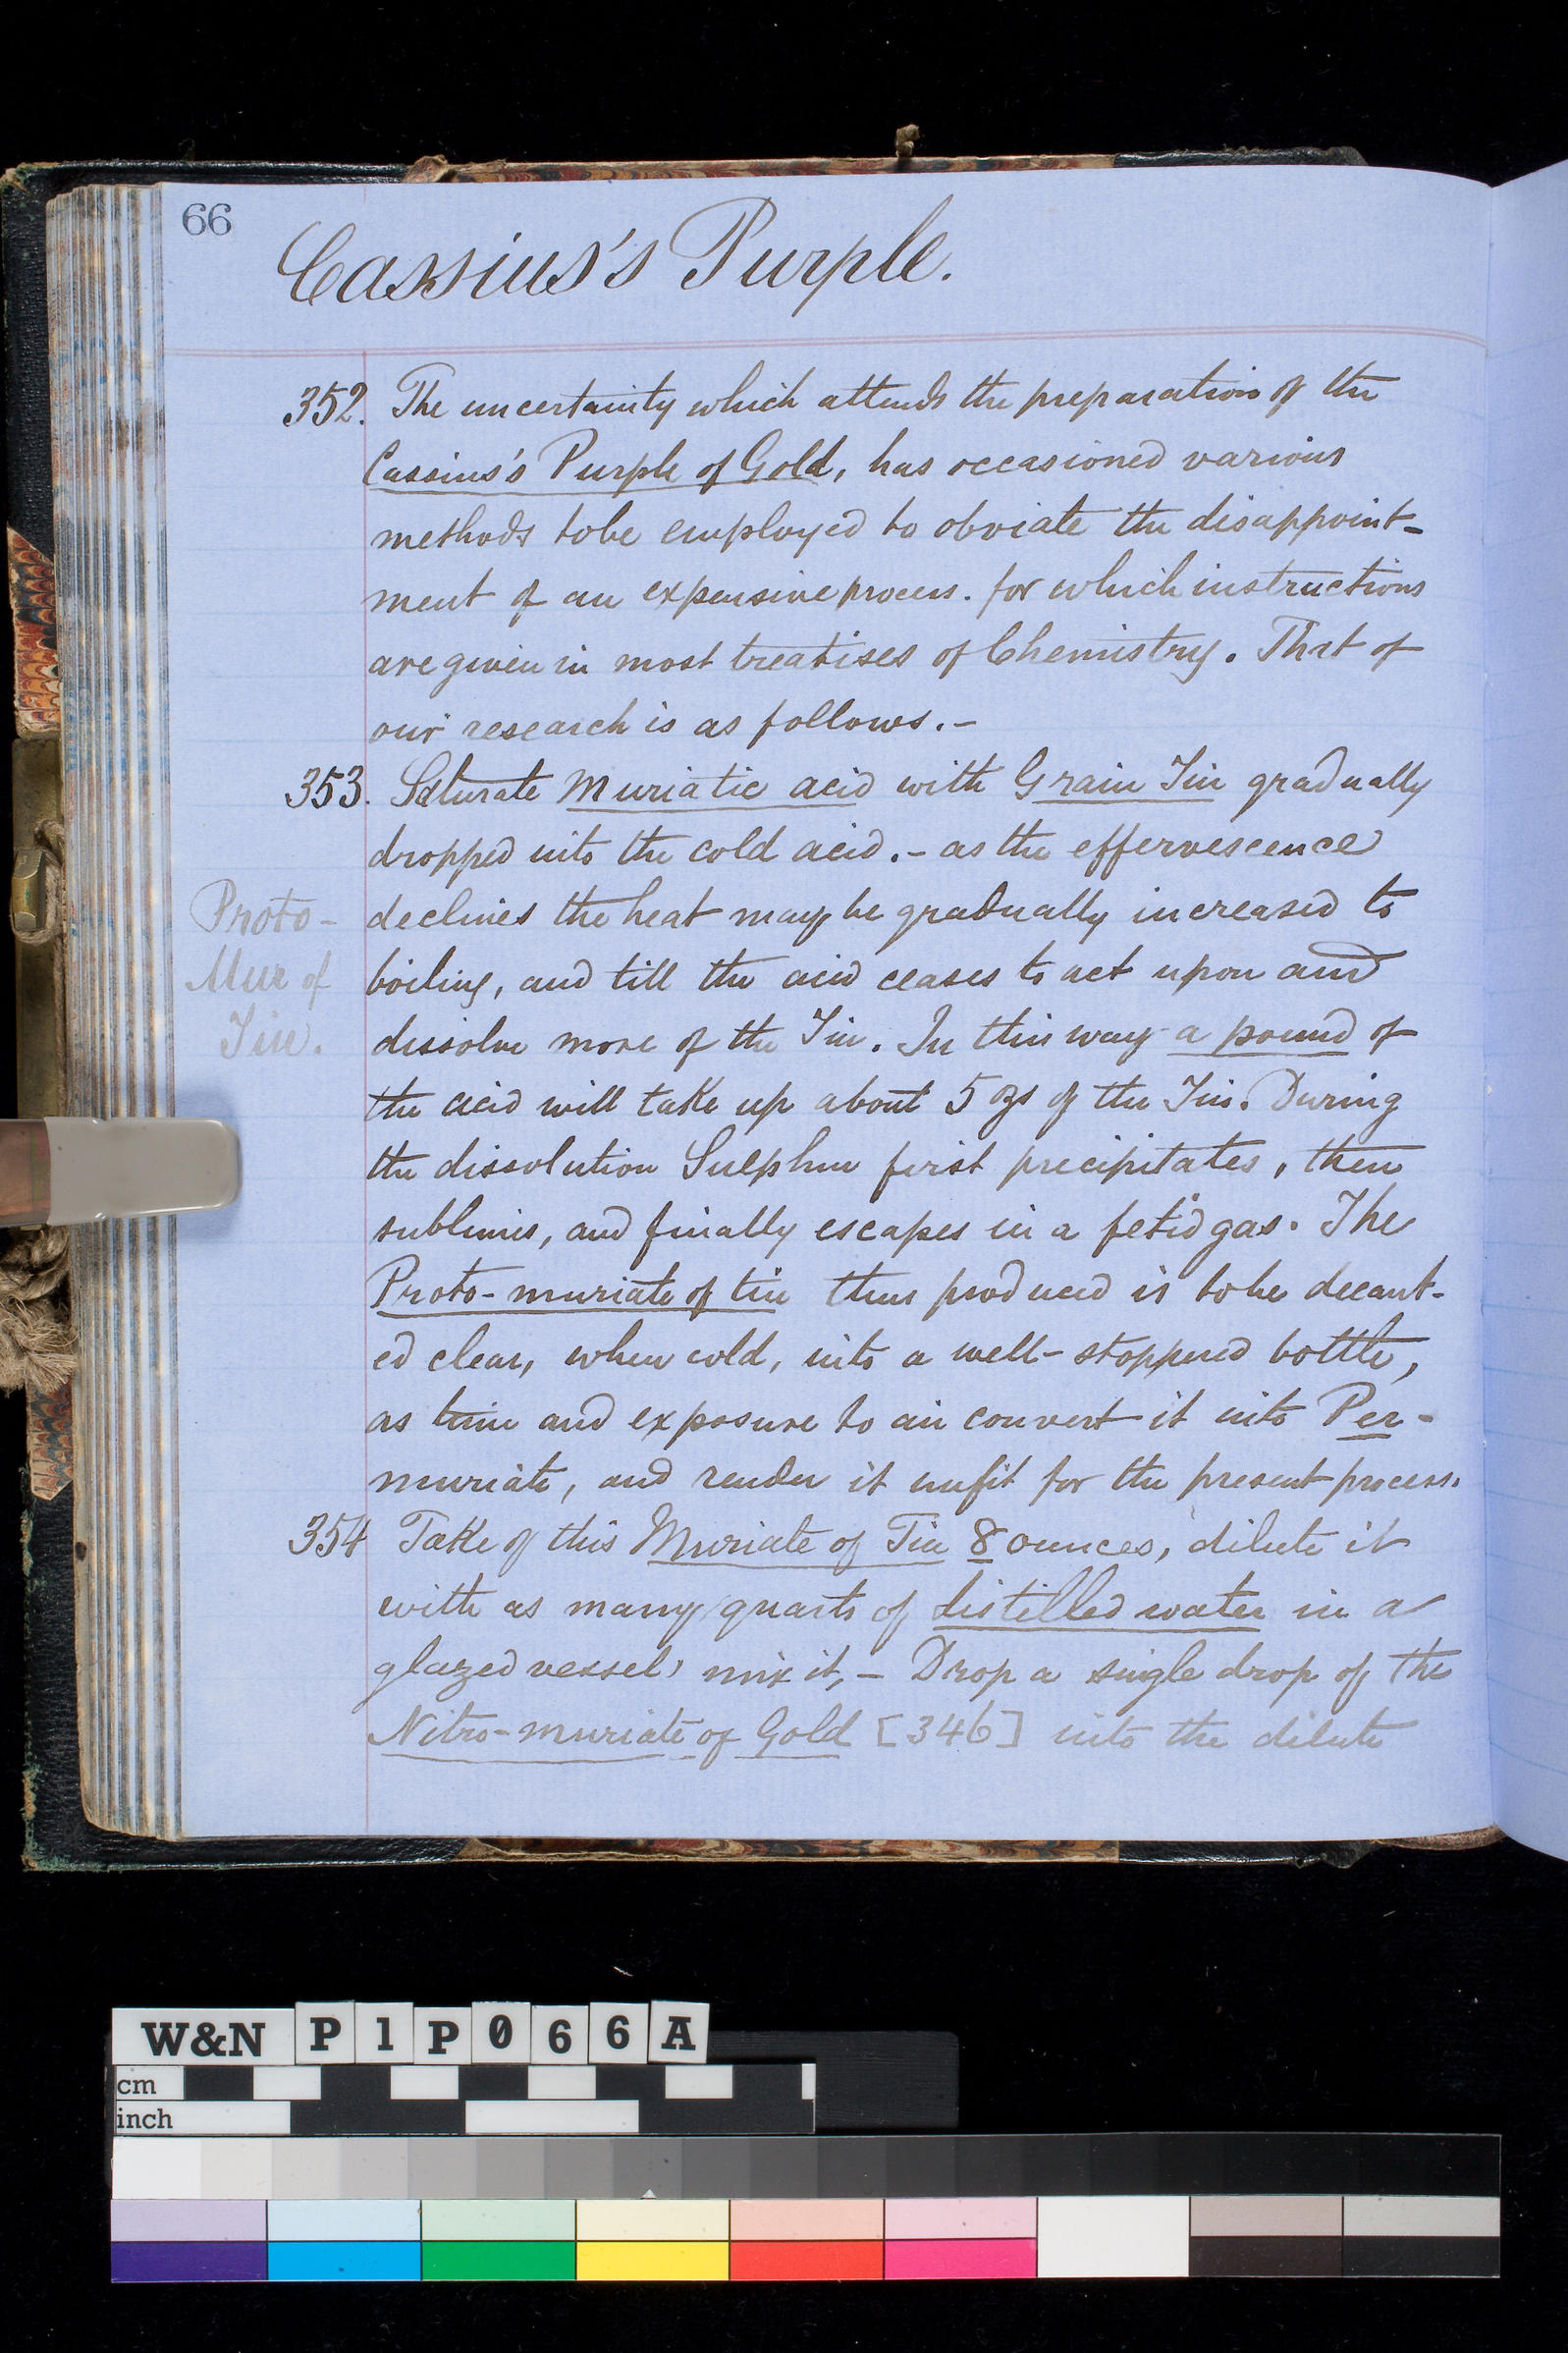 66
Cassius's Purple.
352. The uncertainty which attends the preparation of the
Cassius's Purple of Gold, has occasioned various
methods to be employed to obviate the disappoint-
ment of an expensive process. for which instructions
are given in most treatises of Chemistry. That of
our research is as follows.-
353. Saturate Muriatic acid with Grain Tin gradually
dropped into the cold acid.- as the effervescence
declines the heat may be gradually increased to
boiling, and till the acid ceases to act upon and
dissolve more of the Tin. In this way a pound of
the acid will take up about 5 ozs of the Tin. During
the dissolution Sulphur first precipitates, then
sublimes, and finally escapes in a fetid gas. The
Proto-muriate of tin thus produced is to be decant-
ed clear, when cold, into a well-stoppered bottle,
as time and exposure to air convert it into Per-
muriate, and render it unfit for the present process.
Proto-
Mur of
Tin.
354 Take of this Muriate of Tin 8 ounces, dilute it
with as many quarts of distilled water in a
glazed vessel, mix it, - Drop a single drop of the
Nitro-muriate of Gold [346] into the dilute
W&N P1P066A
cm
inch